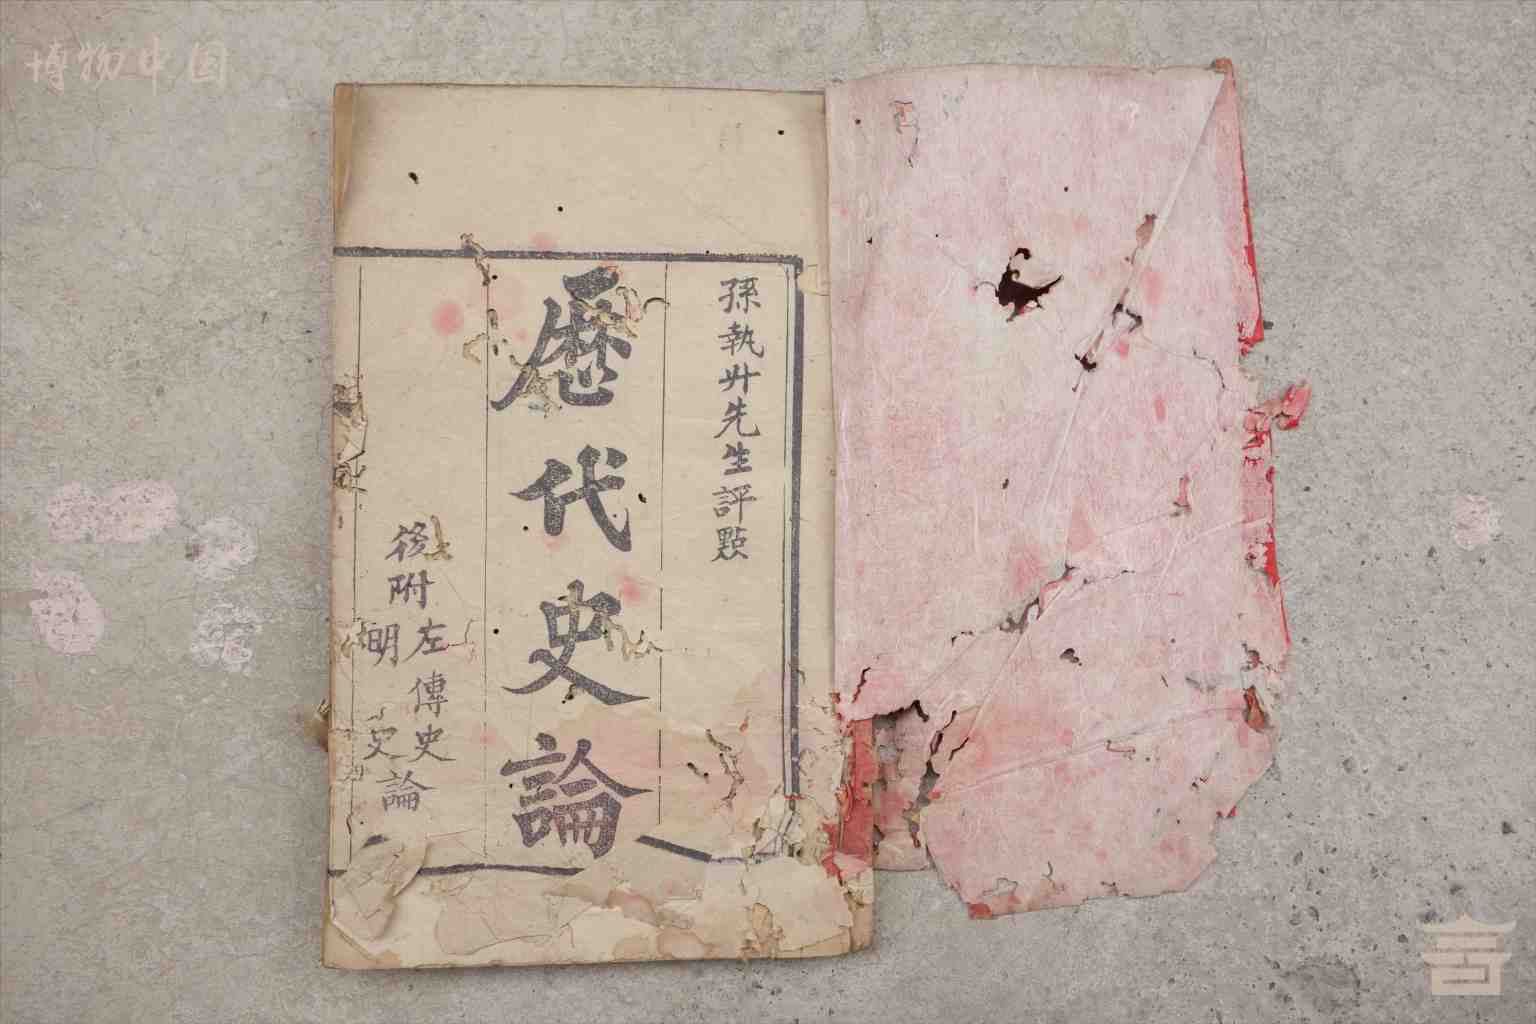 博物中国
孫執升先生評點
歷代史論
後附左傳史論
明史論